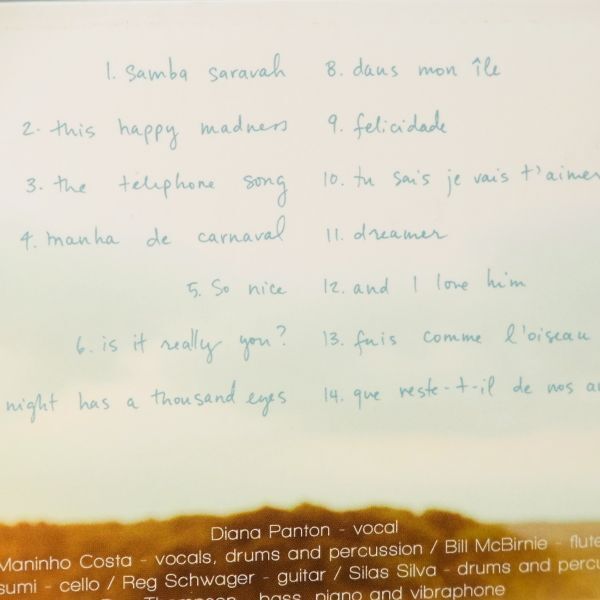 1. samba saravah
2. this happy madness
3. the telephone song
4. manha de carnaval
5. so nice
6. is it really you?
night has a thousand eyes
8. dans mon île
9. felicidade
10. tu sais je vais t'aimer
11. dreamer
12. and I love him
13. fuis comme l'oiseau
14. que reste-t-il de nos
Diana Panton - vocal
Maninho Costa - vocals, drums and percussion / Bill McBirnie - flute
sumi - cello / Reg Schwager - guitar / Silas Silva - drums and percu
Thompson - bass, piano and vibraphone